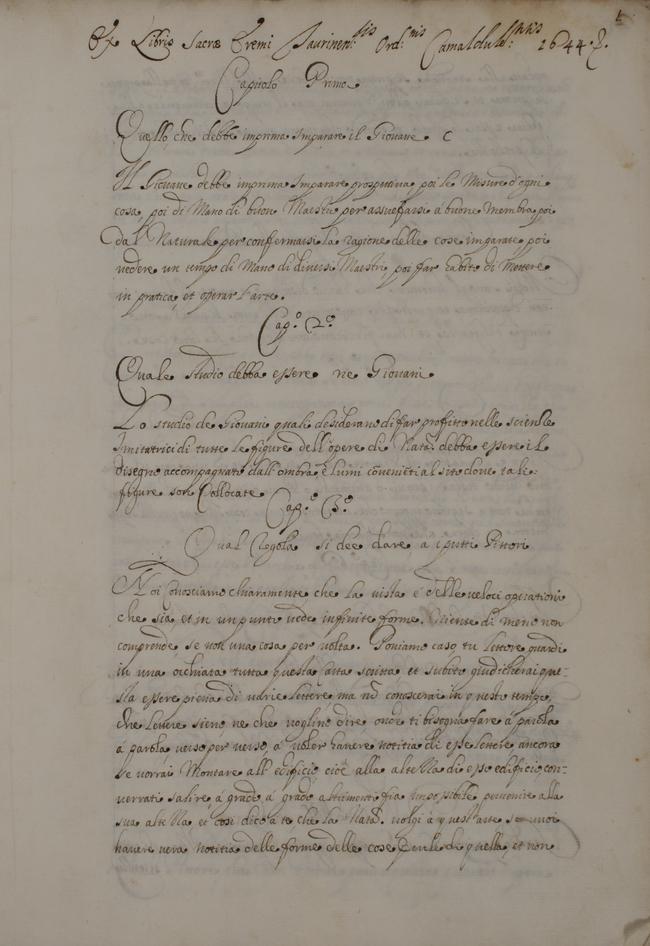 Ex Libris Sacræ Eremi Taurinen:sis Ord:nis Camaldulē:nsis 1644. P.
Capitolo Primo
Quello che debbe imprima imparare il Giovane. C
Il Giovane debbe imprima imparare prospettiva, poi le Misure d'ogni
cosa, poi di Mano di buon Maestro per assuefarsi a buone membra, poi
Dal Naturale per confermarsi la ragione delle cose imparate, poi
vedere un tempo di Mano di diversi Maestri, poi far habito di Mettere
in pratica, et operar l'arte.
Cap.o 2.o
Quale studio debba essere ne Giovani
Lo studio de Giovani quali desiderano di far proffitto nelle scientie
Imitatrici di tutte le figure dell'opere di Nata. debba essere il
Disegno accompagnato dall'ombra, e lumi cōvenièti al sito dove tali
figure son Collocate
Cap.o 3.o
Qual Regola si dee dare a i putti Pittori
Noi conosciamo chiaramente che la vista è delle veloci operationi
che sia, et in un punto vede infinite forme. Niente di meno non
comprende se non una cosa per volta. Poniamo caso tu Lettore guardi
in una occhiata tutta questa carta scritta et subito giudicherai que-
sta essere piena di varie lettere ma nō conoscerai in questo tempo,
che lettere sieno, ne che voglino dire onde ti bisogna fare à parola
a parola verso per verso, a voler havere notitia di esse lettere ancora
se vorrai Montare all'edificio cioè alla altezza di esso edificio, con-
verrati salire à grado, à grado altrimenti fia impossibile pervenire alla
sua altezza et così dico a te che la Nata. volgi à quest'arte se vuoi
havere vera notitia delle forme delle cose di quella, et non